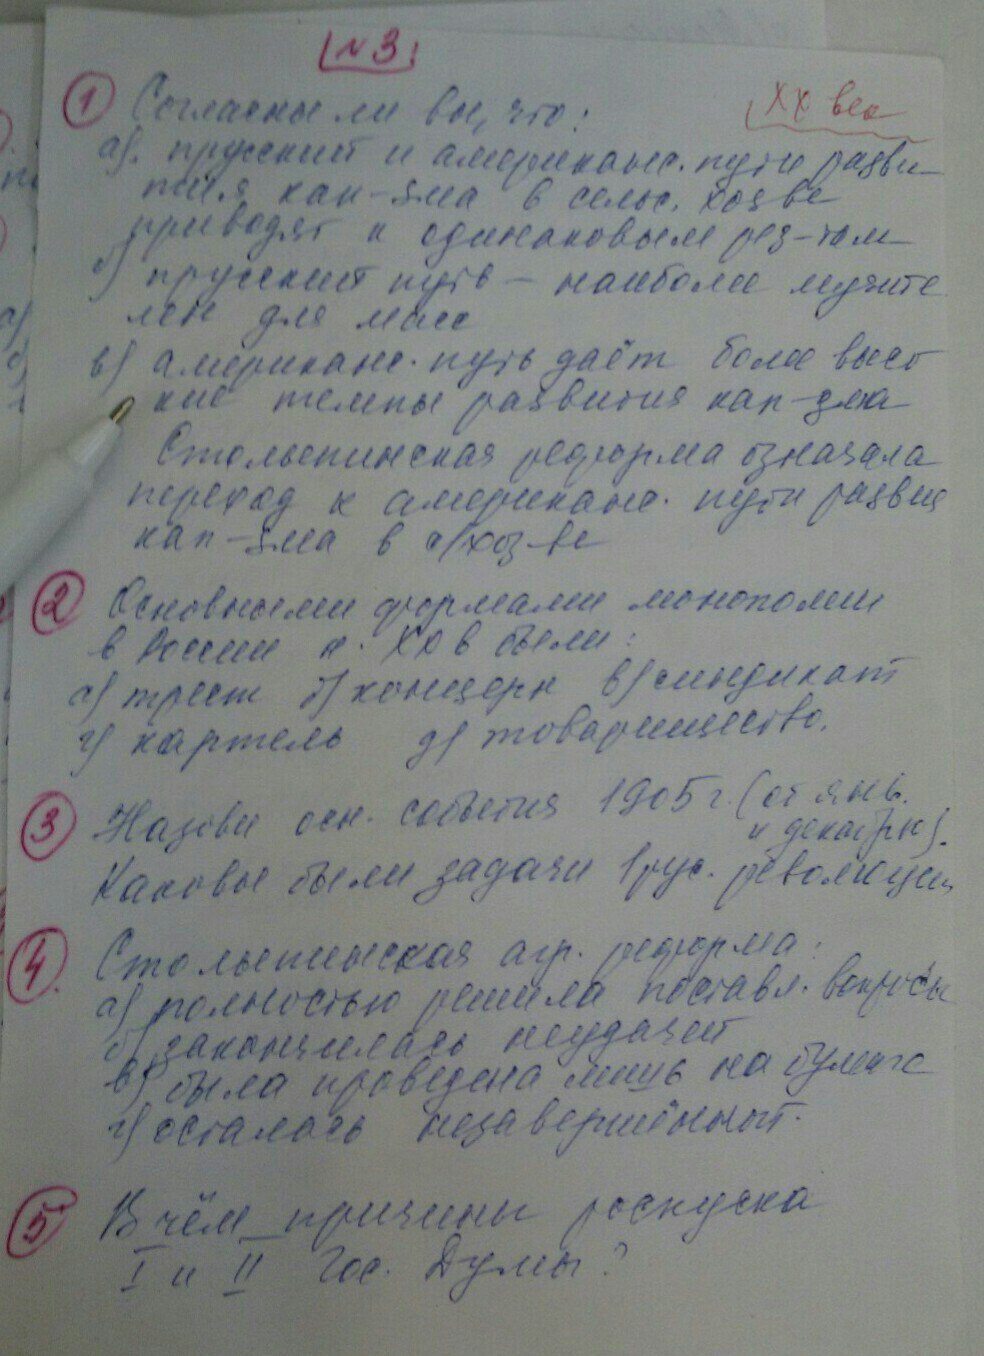 №3
XX век
① Согласны ли вы, что:
а). прусский и американс. пути разви-
тия кап-зма в сельс. хозве
приводят к одинаковым рез-там
б) прусский путь – наиболее мучите
лен для масс
в) американс. путь даёт более высо
кие темпы развития кап-зма
Столыпинская реформа означала
переход к американс. пути развит
кап-зма в с/хоз-ве
② Основными формами монополии
в России н. XX в были:
а) трест б) концерн в) синдикат
г) картель д) товарищество.
③ Назови осн. события 1905 г. (от янв.
к декабрю).
Каковы были задачи 1 рус. революции
④ Столыпинская агр. реформа:
а) полностью решила поставл. вопросы
б) закончилась неудачей
в) была проведена лишь на бумаге
г) осталась незавершённой.
⑤ В чём причины роспуска
I и II Гос. Думы?